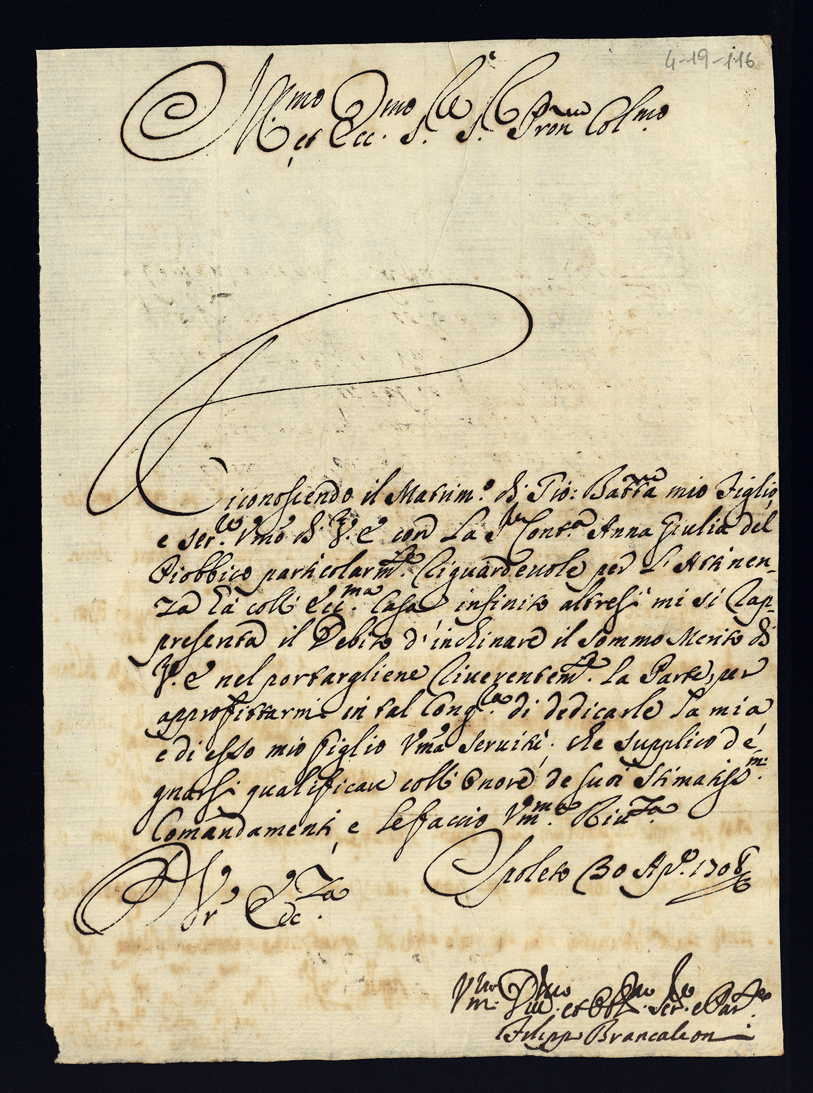 4-19-116
Ill.mo et Ecc.mo S.re S.r Pron Col.mo
Riconoscendo il Matrim.o di Gio: Batta mio Figlio,
e ser.re Vmo di V.E con La S.ra Cont.a Anna Giulia del
Piobbico particolarm.te Riguardevole per L'Attinen-
za hà coll'Ecc.ma Casa infinito altresì mi si Rap-
presenta il Debito d'inchinare il sommo Merito di
V.E nel portargliene Riverentem.te la Parte, per
approfittarmi in tal Cong.ra di dedicarle La mia
e di esso mio Figlio Vma servitù, che supplico dé-
gnarsi qualificare coll'Onore de suoi Stimatiss.mi
Comandamenti, e le faccio Vm.ma Riu.za
Di Vr.a Ecc.za Spoleto 30 Ap.e 1708
Vm.mo Di.mo et Obl.mo Ser.re e Par.te
Filipp Brancaleoni